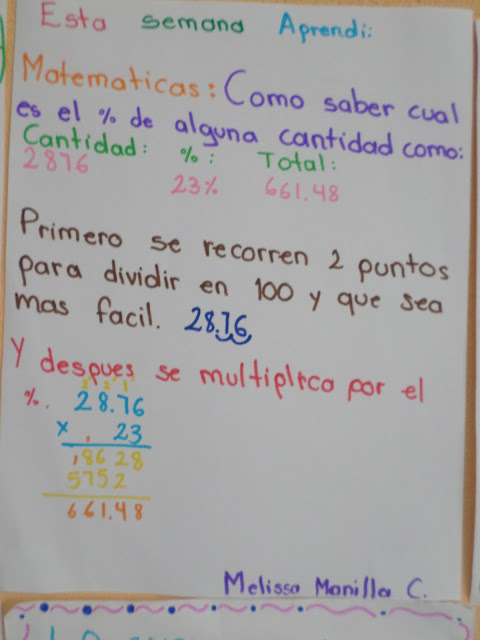 Esta semana Aprendi:
Matematicas: Como saber cual
es el % de alguna cantidad como:
Cantidad: %: Total:
2876 23% 661.48
Primero se recorren 2 puntos
para dividir en 100 y que sea
mas facil. 28.76
Y despues se multiplica por el
%. 28.76
x 23
8628
5752
661.48
Melissa Manilla C.